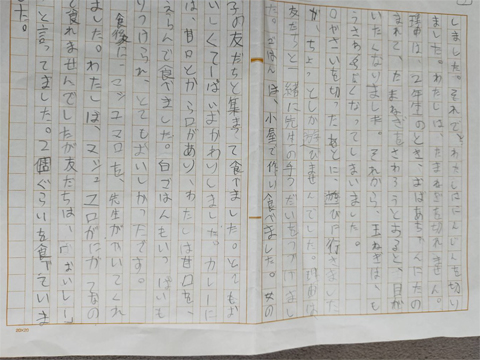 しました。それで、わたしはにんじんを切り
ました。わたしは、たまねぎを切れません。
理由は、2年生のとき、おばあちゃんにたの
まれて、たまねぎをさわろうとすると、目が
いたくなりました。それから、玉ねぎは、も
うさわることなくなってしまいました。
やさいを切ったあとに遊びに行きました
が、ちょっとしか遊びませんでした。
友だちと一緒に先生の手つだいを
た。ごはんは、小屋で作り食べました。女の
子の友だちと集まって食べました。とてもお
いしくて一ぱいおかわりしました。カレーに
は、甘口とから口があり、わたしは甘口を、
えらんで食べました。白ごはんもいっぱいも
りつけられ、とてもおいしかったです。
食後に、マシュマロを、先生がやいてくれ
ました。わたしは、マシュマロがにがてなの
で食れませんでしたが友だちは、「おいしい」
と言ってました。2個ぐらいを食べていま
した。